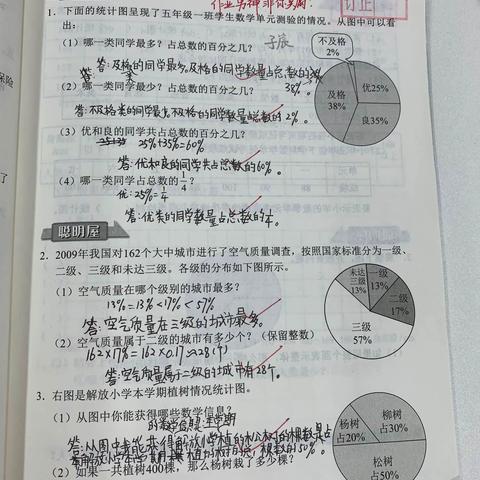 作业男神非你莫属!
订正
1. 下面的统计图呈现了五年级一班学生数学单元测验的情况。从图中可以看
出:
(1)哪一类同学最多?占总数的百分之几?
答:及格的同学最多,及格的同学数量占总数的
38%。
(2)哪一类同学最少?占总数的百分之几?
答:不及格类的同学最少,不及格的同学数量占总数的2%。
(3)优和良的同学共占总数的百分之几?
25%+35%=60%
答:优和良的同学共占总数的60%。
(4)哪一类同学占总数的1/4?
优:25%=1/4
答:优类的同学数量占总数的1/4。
不及格
2%
优25%
及格
38%
良35%
聪明屋
2. 2009年我国对162个大中城市进行了空气质量调查,按照国家标准分为一级、
二级、三级和未达三级。各级的分布如下图所示。
(1)空气质量在哪个级别的城市最多?
13%=13%<17%<57%
答:空气质量在三级的城市最多。
(2)空气质量属于二级的城市有多少个?(保留整数)
162×17%=162×0.17≈28(个)
答:空气质量属于二级的城市有28个。
未达
三级
13%
一级
13%
二级
17%
三级
57%
3. 右图是解放小学本学期植树情况统计图。
(1)从图中你能获得哪些数学信息?
(2)如果一共植树400棵,那么杨树栽了多少棵?
杨树
占20%
柳树
占30%
松树
占50%
保险
了